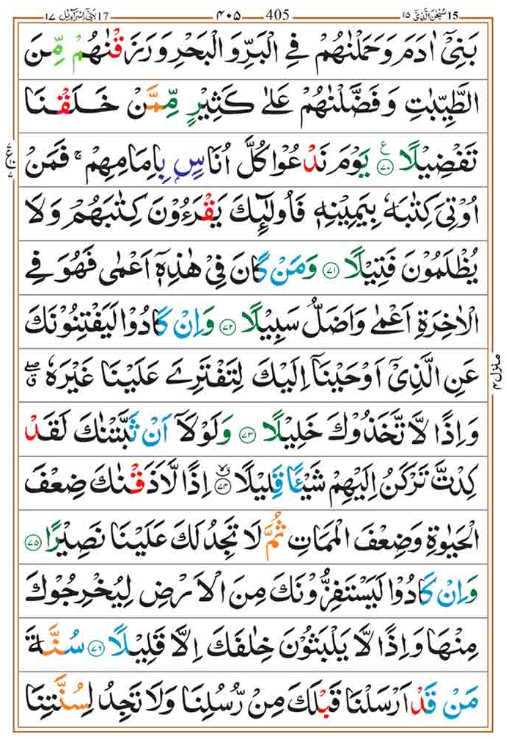 ١٧ بنیٓ اسرآءیل 17 ۴۰۵ 405 سبحٰن الذیٓ ١٥ 15
بَنِیْۤ اٰدَمَ وَحَمَلْنٰهُمْ فِی الْبَرِّ وَ الْبَحْرِ وَ رَزَقْنٰهُمْ مِّنَ
الطَّیِّبٰتِ وَ فَضَّلْنٰهُمْ عَلٰی كَثِیْرٍ مِّمَّنْ خَلَقْنَا
تَفْضِیْلًا ۧ﴿۷۰﴾ یَوْمَ نَدْعُوْا كُلَّ اُنَاسٍۭ بِاِمَامِهِمْ ۚ فَمَنْ
اُوْتِیَ كِتٰبَهٗ بِیَمِیْنِهٖ فَاُولٰٓئِكَ یَقْرَءُوْنَ كِتٰبَهُمْ وَلَا
یُظْلَمُوْنَ فَتِیْلًا ﴿۷۱﴾ وَ مَنْ كَانَ فِیْ هٰذِهٖۤ اَعْمٰی فَهُوَ فِی
الْاٰخِرَةِ اَعْمٰی وَ اَضَلُّ سَبِیْلًا ﴿۷۲﴾ وَ اِنْ كَادُوْا لَیَفْتِنُوْنَكَ
عَنِ الَّذِیْۤ اَوْحَیْنَاۤ اِلَیْكَ لِتَفْتَرِیَ عَلَیْنَا غَیْرَهٗ ۖۗ
وَ اِذًا لَّاتَّخَذُوْكَ خَلِیْلًا ﴿۷۳﴾ وَ لَوْلَاۤ اَنْ ثَبَّتْنٰكَ لَقَدْ
كِدْتَّ تَرْكَنُ اِلَیْهِمْ شَیْـًٔا قَلِیْلًا ﴿۷۴﴾ اِذًا لَّاَذَقْنٰكَ ضِعْفَ
الْحَیٰوةِ وَ ضِعْفَ الْمَمَاتِ ثُمَّ لَا تَجِدُ لَكَ عَلَیْنَا نَصِیْرًا ﴿۷۵﴾
وَ اِنْ كَادُوْا لَیَسْتَفِزُّوْنَكَ مِنَ الْاَرْضِ لِیُخْرِجُوْكَ
مِنْهَا وَ اِذًا لَّا یَلْبَثُوْنَ خِلٰفَكَ اِلَّا قَلِیْلًا ﴿۷۶﴾ سُنَّةَ
مَنْ قَدْ اَرْسَلْنَا قَبْلَكَ مِنْ رُّسُلِنَا وَلَا تَجِدُ لِسُنَّتِنَا
منزل ۴